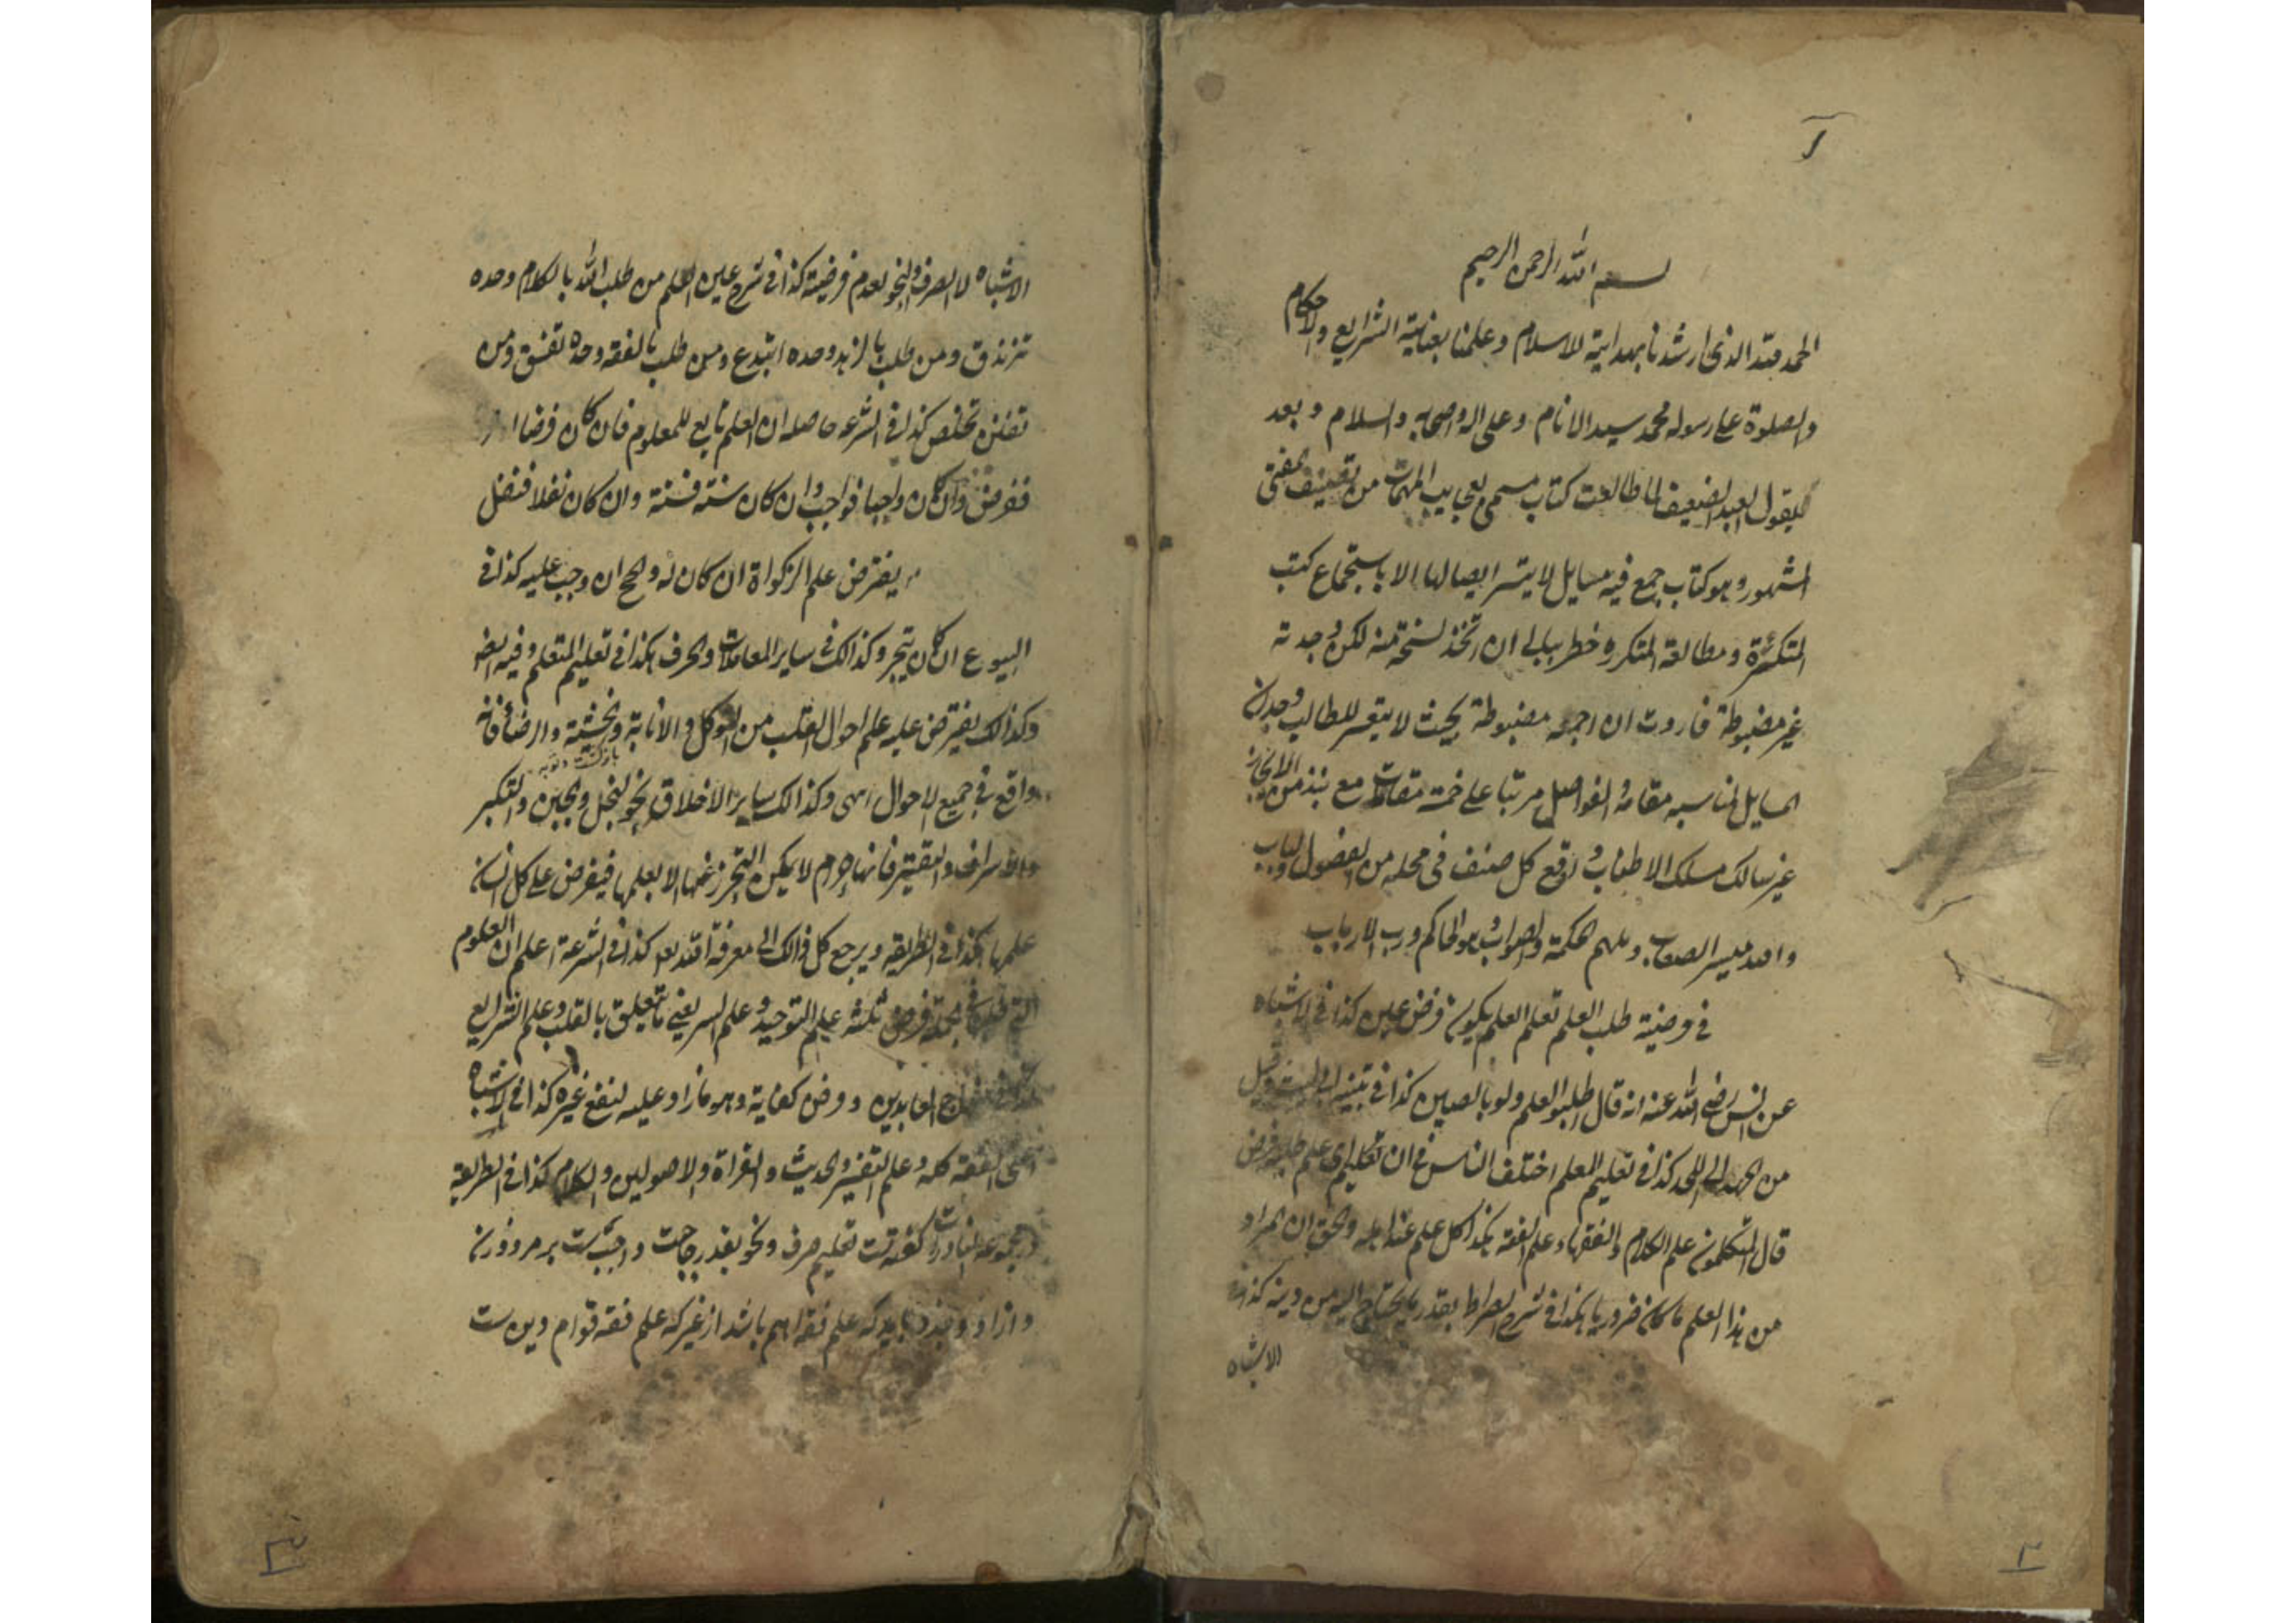 بسم الله الرحمن الرحيم
الحمد لله الذى ارشدنا بهداية الاسلام وعلمنا بعناية الشرايع والاحكام
والصلوة على رسوله محمد سيد الانام وعلى اله واصحابه والسلام وبعد
فيقول العبد الضعيف لما طالعت كتاب مسمى بعجايب المهمات من تصنيف مفتى
المشهور وهو كتاب جمع فيه مسايل لا يتسر ايصالها الا باستجماع كتب
المتكثرة ومطالعة المتكره خطر ببالى ان اتخذ نسخة منه لكن وجدته
غير مضبوطة فاردت ان اجمعه مضبوطة بحيث لا يتعسر للطالب وجدان
المسايل مناسبه مقامه والفواصل مرتبا على خمسة مقامات مع نبذ من الايجاز
غير سالك مسلك الاطناب واوقع كل صنف فى محله من الفصول والباب
والله ميسر الصعاب وملهم الحكمة والصواب وهو الحاكم ورب الارباب
فى فرضية طلب العلم تعلم العلم يكون فرض عين كذا فى الاشباه
عن انس رضى الله عنه انه قال اطلبوا العلم ولو بالصين كذا فى تنبيه وقيل
من المهد الى اللحد كذا فى تعليم المعلم اختلف الناس فى ان اى علم طلبه فرض
قال المتكلمون علم الكلام والفقهاء علم الفقه هكذا كل علم عند اهله والحق ان المراد
من هذا العلم ما كان ضروريا هكذا فى شرح الصراط بقدر ما يحتاج اليه من دينه كذا فى
الاشباه
الاشباه لا الصرف والنحو لعدم فرضيته كذا فى شرح عين العلم من طلب الله بالكلام وحده
تزندق ومن طلب بالزهد وحده ابتدع ومن طلب بالفقه وحده تفسق ومن
تفنن تخلص كذا فى الشرعه حاصله ان العلم تابع للمعلوم فان كان فرضا
ففرض وان كان واجبا فواجب وان كان سنة فسنة وان كان نفلا فنفل
يفترض علم الزكواة ان كان له والحج ان وجب عليه كذا فى
البيوع ان كان يتجر وكذالك فى ساير المعاملات والحرف هكذا فى تعليم المتعلم وفيه ايضا
وكذالك يفترض عليه علم احوال القلب من التوكل والانابة والخشية والرضا فانه
بازگشت و توبه
واقع فى جميع الاحوال انتهى وكذالك ساير الاخلاق نحو البخل والجبن والتكبر
والاسراف والتقتير فانها حرام لا يمكن التحرز عنها الا بعلمها فيفرض على كل انسان
علمها هكذا فى الطريقه ويرجع كل ذالك الى معرفة الله كذا فى الشرعة اعلم ان العلوم
التى فرض ثلثه علم التوحيد وعلم السر يعنى ما يتعلق بالقلب وعلم الشرايع
كذا فى منهاج العابدين وفرض كفاية وهو ما زاد عليه لنفع غيره كذا فى الاشباه
اعنى الفقه كله وعلم التفسير والحديث والقراة والاصولين والكلام كذا فى الطريقة
در مجموعه گفته است تعليم صرف ونحو بقدر حاجت واجب است بر مرد وزن
وازاد وبنده بايد كه علم فقه اهم باشد از غير كه علم فقه قوام دين ست
٢
٣